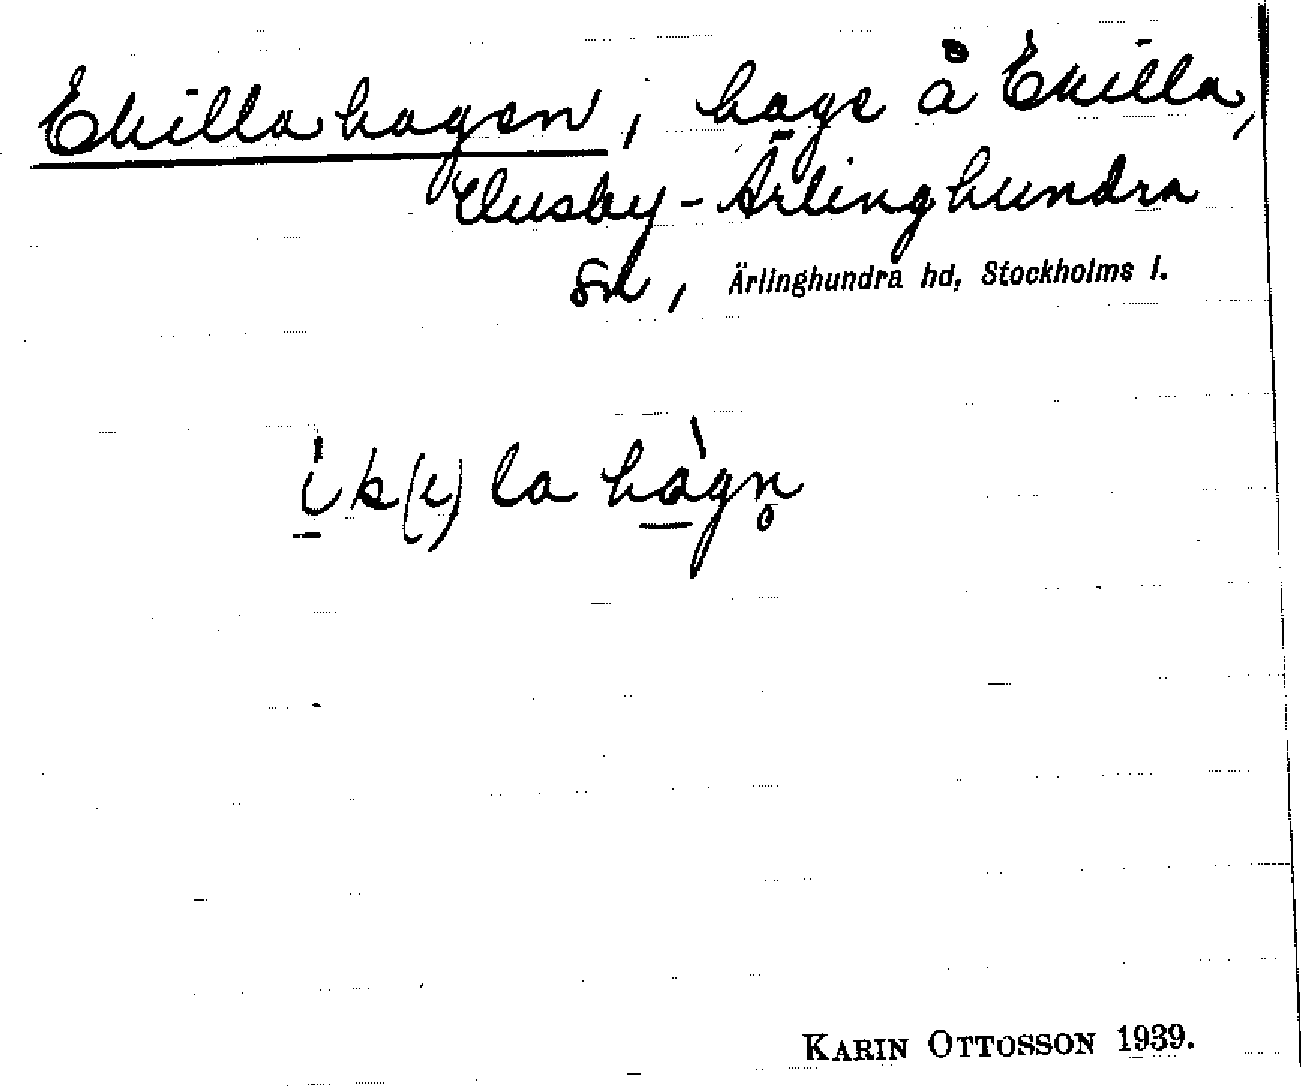 Ekillahagen, hage å Ekilla,
Husby-Ärlinghundra
sn, Ärlinghundra hd, Stockholms l.
ìk(i)la hàgn̥
KARIN OTTOSSON 1939.